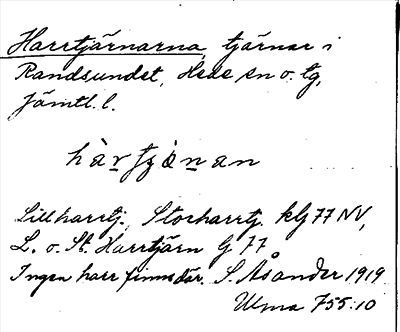 Harrtjärnarna, tjärnar i
Randsundet, Hede sn o. tg,
Jämtl. l.
hàr̲tjɶ̀n̲an
Lillharrtj., Storharrtj. klj 77 NV,
L. o. St. Harrtjärn G 77
Ingen harr finns där. S. Åsander 1919
Ulma 755:10